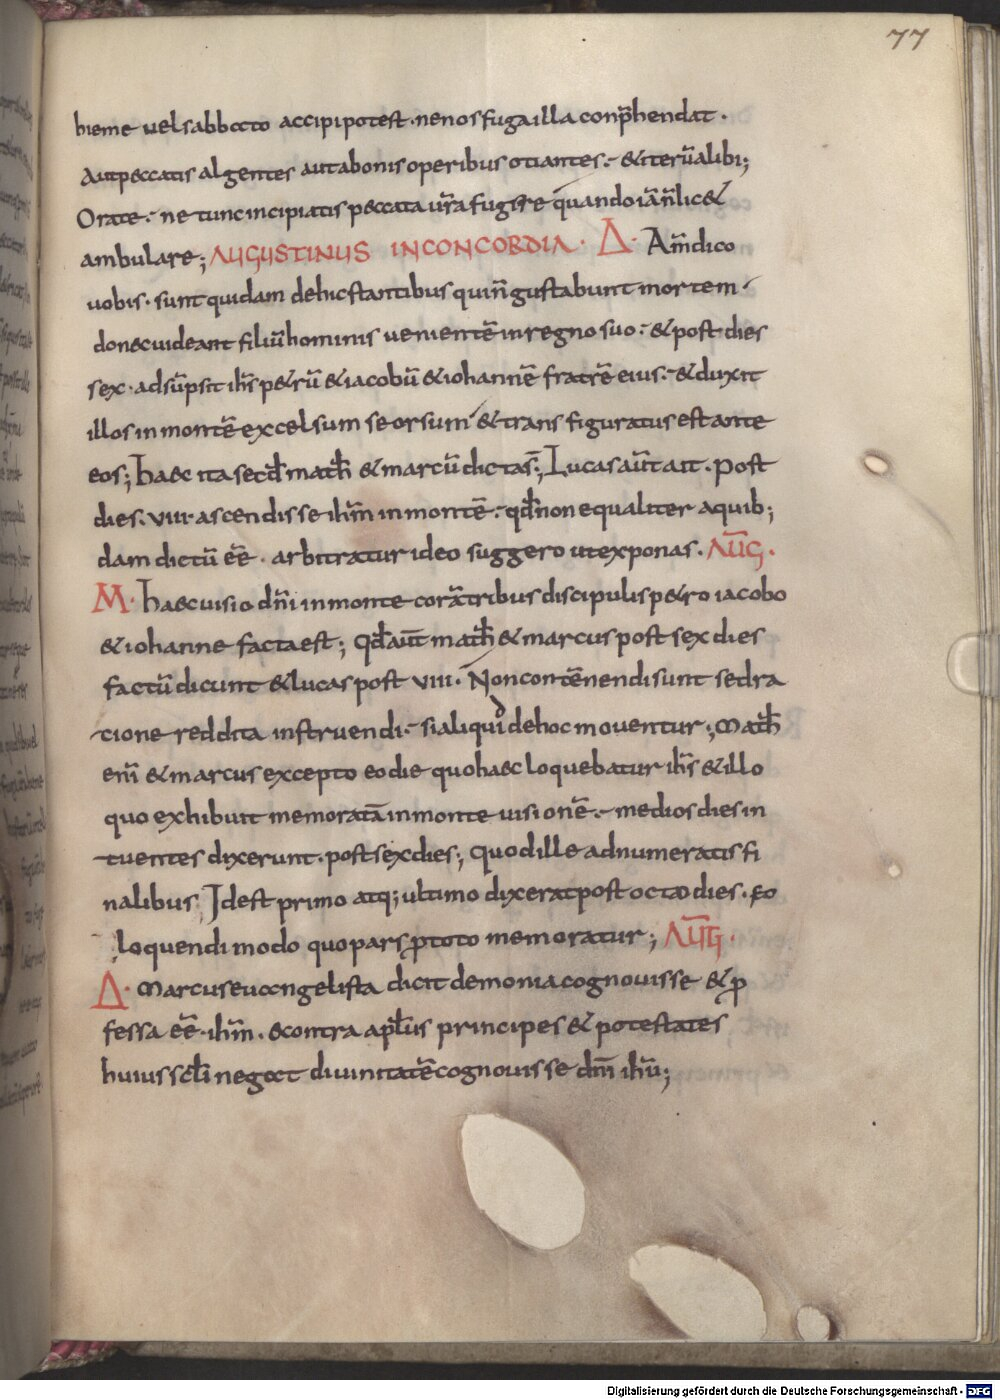 77
hieme uel sabbato accipi potest · ne nos fuga illa conp̄hendat ·
Aut peccatis algentes aut a bonis operibus otiantes :· & iterū alibi ;
Orate :· ne tunc incipiatis peccata ur̄a fugire quando iā n̄ lic&
ambulare ; AUGUSTINUS IN CONCORDIA · Δ · Am̄ dico
uobis · sunt quidam de hic stantibus qui n̄ gustabunt mortem ·
donec uideant filiū hominis uenientē in regno suo :· & post dies
sex · adsūpsit ih̄s p&rū & iacobū & iohannē fratrē eius :· & duxit
illos in montē excelsum seorsum & transfiguratus est ante
eos ; haec ita secd̄ math̄ & marcū dictas̄ ; Lucas aūt ait · post
dies · VIII · ascendisse ih̄m in montē :· qd̄ non equaliter a quib ;
dam dictū eē · arbitratur ideo suggero ut exponas · AŪG ·
M · haec uisio dn̄i in monte corā tribus discipulis p&ro iacobo
& iohanne facta est ; qd̄ aūt math̄ & marcus post sex dies
factū dicunt & lucas post VIII · Non contēnendi sunt sed ra
cione reddita instruendi :· si aliquid de hoc moventur ; Math̄
enī & marcus excepto eo die quo haec loquebatur ih̄s & illo
quo exhibuit memoratā in monte uisionē :· medios dies in
tuentes dixerunt · post sex dies ; quod ille adnumeratis fi
nalibus Id est primo atq; ultimo dixerat post octo dies · eo
loquendi modo quo pars p̱ toto memoratur ; AŪG ·
Δ · Marcus euangelista dicit demonia cognouisse & p̱
fessa eē · ih̄m · & contra apl̄us principes & potestates
huius scl̄i negat diuinitatē cognouisse dn̄m ih̄u ;
Digitalisierung gefördert durch die Deutsche Forschungsgemeinschaft - DFG